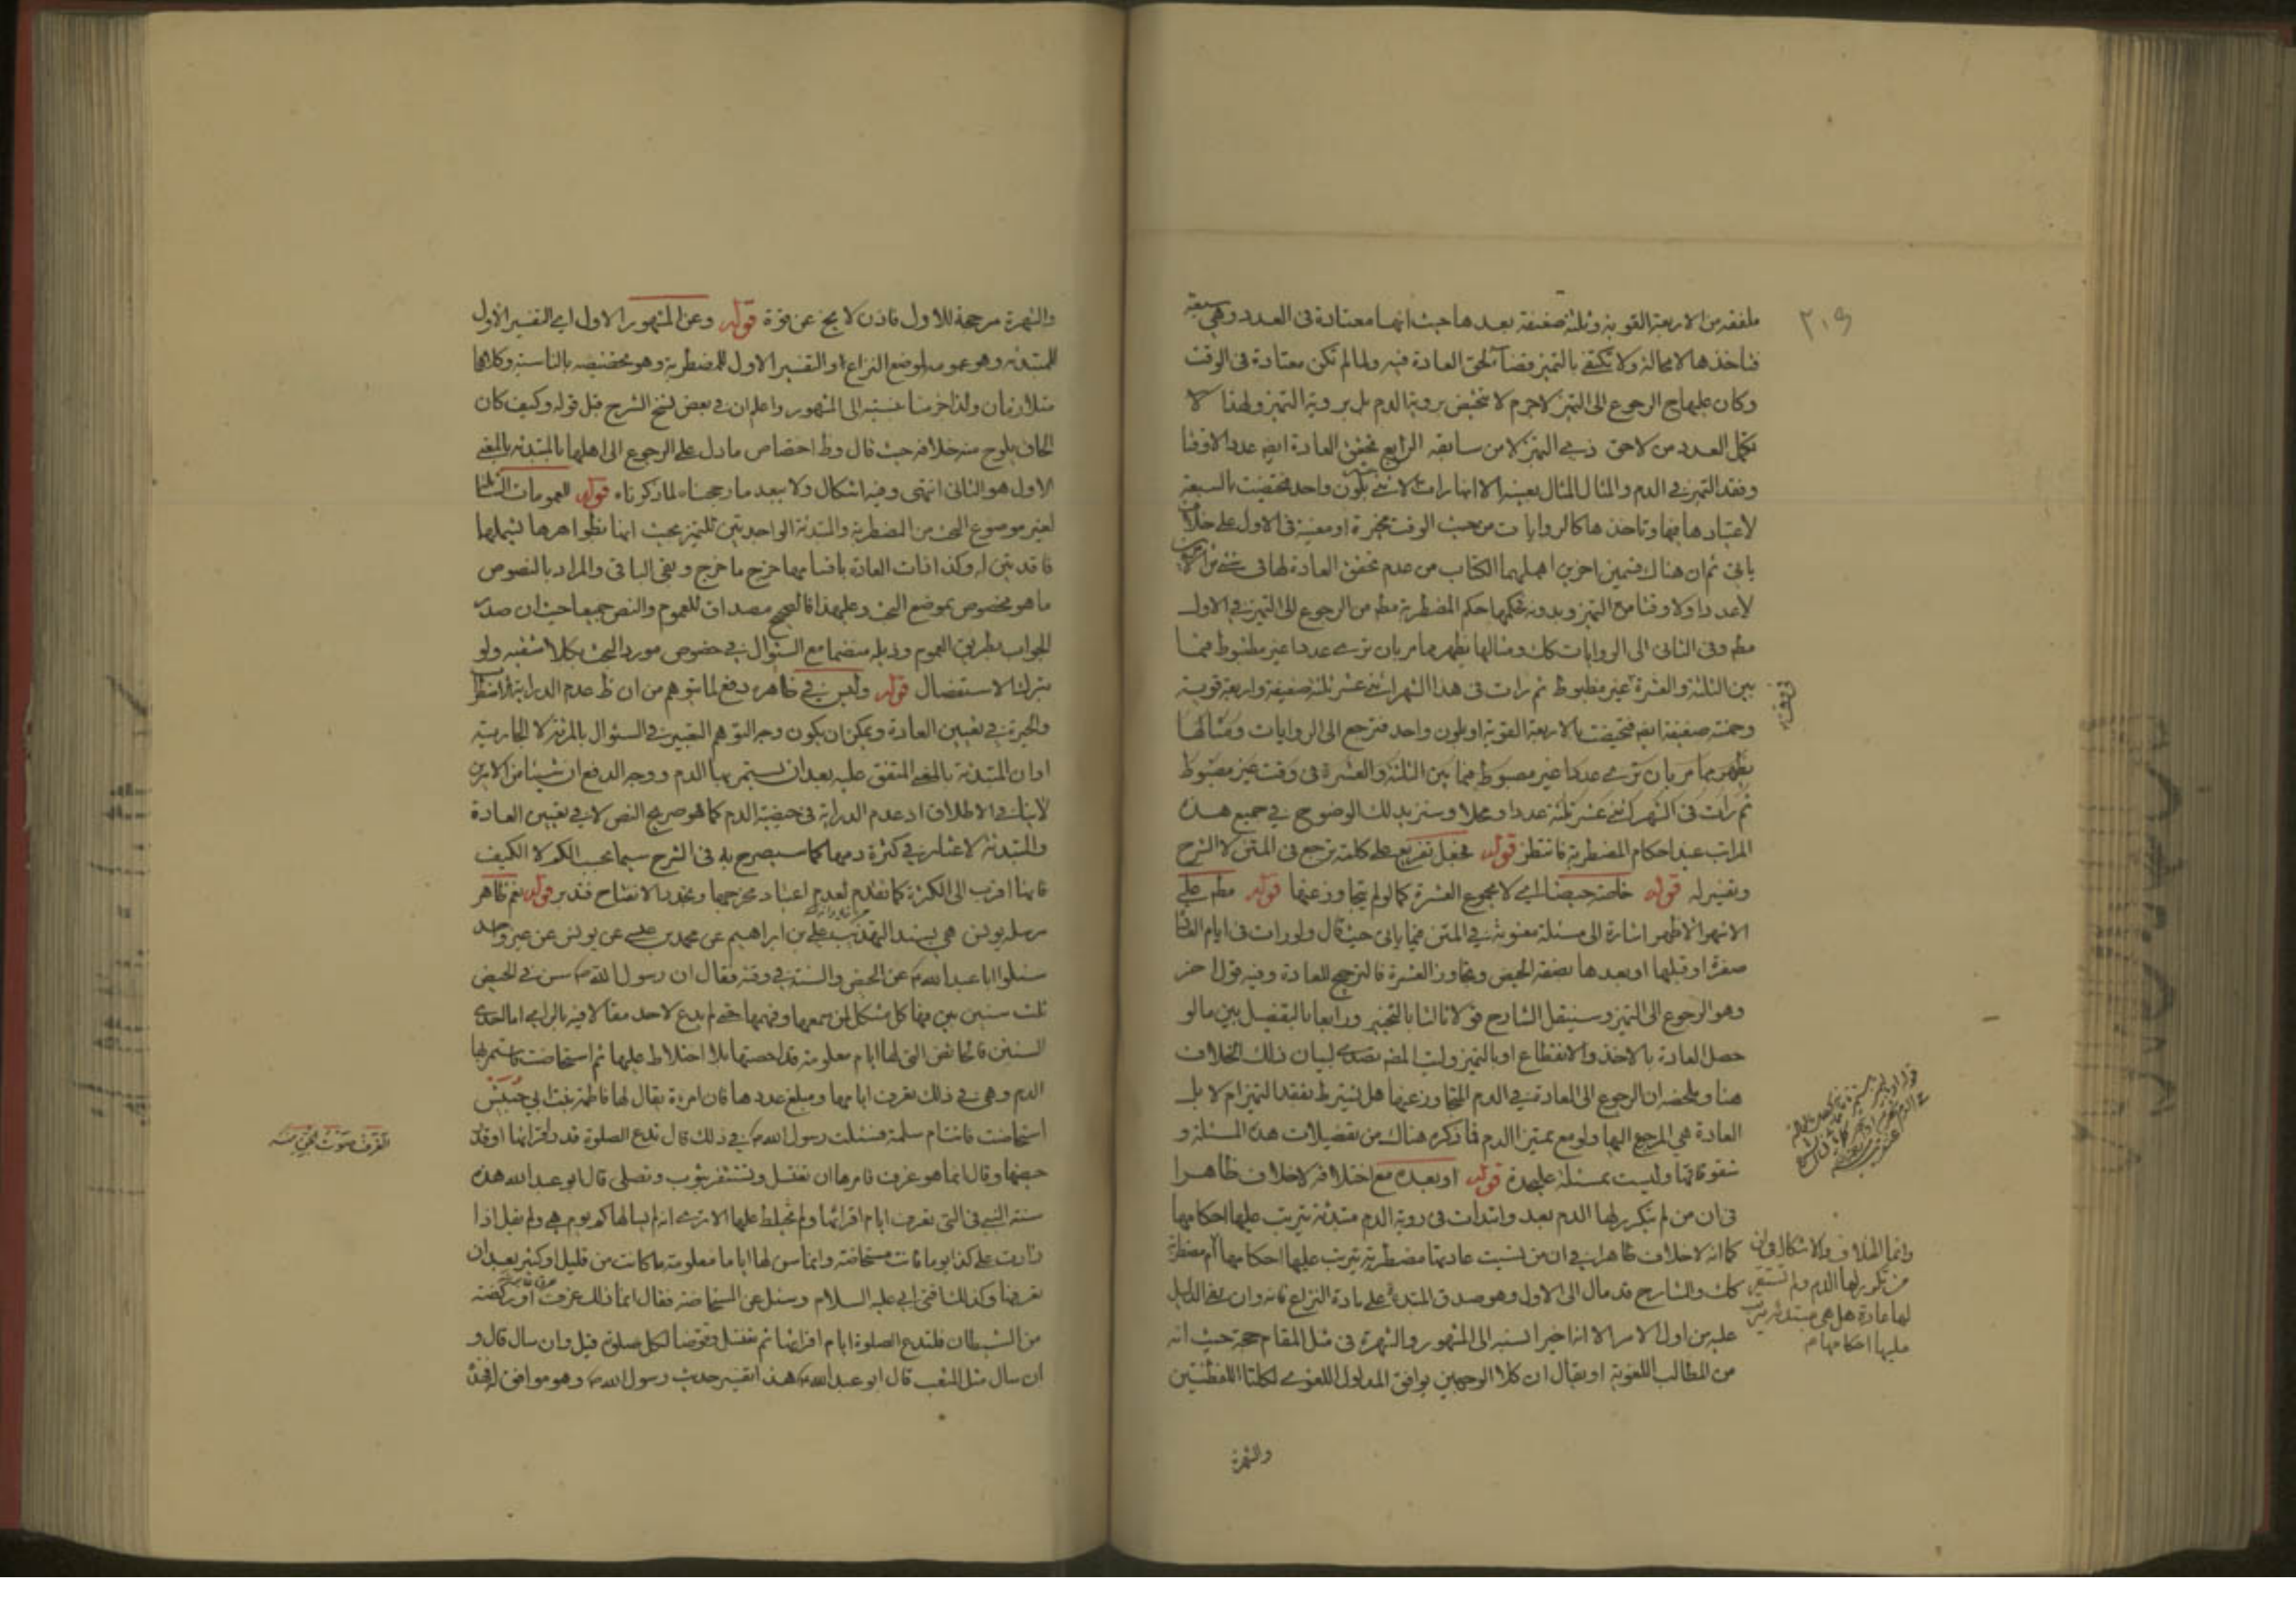 ٢٠٩
ملفقه من الاربعة القوية وثلثة ضعيفة بعدها حيث انها معتادة فى العدد وهى سبعة
فتاخذها لا محالة ولا تكتفى بالتميز قضاء لحق العادة فيه ولما لم تكن معتادة فى الوقت
وكان عليها ح الرجوع الى التميز لاجرم لا تتحيض بروية الدم بل بروية التميز ولهذا لا
تكمل العدد من لاحق ذى التميز لا من سابقه الرابع تحقق العادة ايضا عددا لا وقتا
وفقد التميز فى الدم والمثال المثال بعينه الا انها رات الاثنى عشر بلون واحد فتحيضت بالسبعة
لاعتيادها فيها وتاخذها كالروايات من حيث الوقت مخيرة او معينة فى الاول على خلاف
ياتى ثم ان هناك قسمين اخرين اهملهما الكتاب من عدم تحقق العادة لها فى شئ من
لا عددا ولا وقتا مع التميز وبدونه فحكمها حكم المضطربة مطم من الرجوع الى التميز فى الاول
مطم وفى الثانى الى الروايات كك ومثالها يظهر مما مر بان ترى عددا غير مظبوط فيما
بين الثلثة والعشرة غير مظبوط ثم رات فى هذا الشهر اثنى عشر ثلثة ضعيفة واربعة قوية
وخمسة ضعيفة ايضا فتحيضت بالاربعة القوية او بلون واحد فترجع الى الروايات ومثالها
يظهر مما مر بان ترى عددا غير مضبوط فيما بين الثلثة والعشرة فى وقت غير مضبوط
ثم رات فى الشهر اثنى عشر ثلثة عددا ومحلا وستزيد لك الوضوح فى جميع هذه
المراتب عند احكام المضطربة فانتظر قوله فجعل تفريع على كلمة ترجع فى المتن لا الشرح
وتفسير له قوله خاصة حيضا اى لا مجموع العشرة كما لو لم يتجاوز عنها قوله مطم على
الاشهر الاظهر اشارة الى مسئلة معنونة فى المتن فيما ياتى حيث قال ولو رات فى ايام العادة
صفرة او قبلها او بعدها بصفة الحيض وتجاوز العشرة فالترجيح للعادة وفيه قول اخر
وهو الرجوع الى التميز وسينقل الشارح قولا ثالثا بالتخيير ورابعا بالتفصيل بين ما لو
حصل العادة بالاخذ والانقطاع او بالتميز وليت المصه تصدى لبيان ذلك الخلاف
هنا وملخصه ان الرجوع الى العادة فى الدم المتجاوز عنها هل يشترط بفقد التميز ام لا بل
العادة هى المرجع اليها ولو مع تميز الدم فما ذكره هناك من تفصيلات هذه المسئلة و
شقوقاتها وليست بمسئلة عليحدة قوله او بعده مع اختلافه لا خلاف ظاهرا
فى ان من لم يتكرر لها الدم بعد وابتدات فى روية الدم مبتدئة يترتب عليها احكامها
كما انه لا خلاف ظاهرا فى ان من نسيت عادتها مضطربة يترتب عليها احكامها ام مضطربة
كك والشارح قد مال الى الاول وهو صدق المبتدئة على مادة النزاع فانه وان نفى الدليل
عليه من اول الامر الا انه اخيرا نسبه الى المشهور والشهرة فى مثل المقام حجة حيث انه
من المطالب اللغوية او يقال ان كلا الوجهين يوافق المدلول اللغوى لكلتا اللفظتين
وانما الخلاف والاشكال فى ان
من تكرر لها الدم ولم تستقر
لها عادة هل هى مبتدئة يترتب
عليها احكامها
والشهرة
والشهرة مرجحة للاول فاذن لا يخ عن قوة قوله وعن المشهور الاول اى التفسير الاول
للمبتدئة وهو عمومه لموضع النزاع او التفسير الاول للمضطربة وهو تخصيصه بالناسية وكلاهما
متلازمان ولذا جزمنا نسبته الى المشهور واعلم ان فى بعض نسخ الشرح قبل قوله وكيف كان
الحاق يلوح منه خلافه حيث قال وظ اختصاص ما دل على الرجوع الى اهلها بالمبتدئة بالمعنى
الاول هو الثانى انتهى وفيه اشكال ولا يبعد ما رجحناه لما ذكرناه قوله للعمومات الشاملة
لغير موضوع البحث من المضطربة والمبتدئة الواجدتين للتميز بحيث انها بظواهرها تشملها
فاقدتين له وكذا ذات العادة باقسامها خرج ما خرج وبقى الباقى والمراد بالنصوص
ما هو مخصوص بموضع البحث وعلى هذا فالصحيح مصداق للعموم والنص جميعا حيث ان صدر
الجواب بطريق العموم وذيله منضما مع السئوال فى خصوص مورد البحث بكلا شقيه ولو
بترك الاستفصال قوله وليس فى ظاهره دفع لما يتوهم من ان ظ عدم الدراية
والحيرة فى تعيين العادة ويمكن ان يكون وجه التوهم التعبير فى السئوال بالمرئة لا الجارية
او ان المبتدئة بالمعنى المتفق عليه بعد ان يستمر بها الدم ووجه الدفع ان شيئا من الامرين
لا ينافى الاطلاق اذ عدم الدراية فى حيضية الدم كما هو صريح النص لا فى تعيين العادة
والمبتدئة لا عثار فى كثرة دمها كما سيصرح به فى الشرح سيما بحسب الكم لا الكيف
فانها اقرب الى الكثرة كما تقدم لعدم اعتياد مخرجها وبحدد الانفتاح فتدبر قوله نعم ظاهر
مرسلة يونس هى بسند التهذيب على بن ابراهيم عن محمد بن عيسى عن يونس عن غير واحد
سئلوا ابا عبد الله ع عن الحيض والسنة فى وقته فقال ان رسول الله ص سن فى الحيض
ثلث سنين بين فيها كل مشكل لمن سمعها وفهمها حتى لم يدع لاحد مقالا فيه بالراى اما احدى
السنين فالحائض التى لها ايام معلومة قد احصتها بلا اختلاط عليها ثم استحاضت فاستمر بها
الدم وهى فى ذلك تعرف ايامها ومبلغ عددها فان امرءة يقال لها فاطمة بنت ابى حبيش
استحاضت فاتت ام سلمة فسئلت رسول الله ص فى ذلك قال تدع الصلوة قدر اقرائها او قدر
حيضها وقال انما هو عزف فامرها ان تغتسل وتستثفر بثوب وتصلى قال ابو عبد الله هذه
سنة النبى فى التى تعرف ايام اقرائها ولم تختلط عليها الا ترى انه لم يسالها كم يوم هى ولم يقل اذا
زادت على كذا يوما فانت مستحاضة وانما سن لها اياما معلومة ما كانت من قليل او كثير بعد ان
تعرفها وكذلك افتى ابى عليه السلام وسئل عن المستحاضة فقال انما ذلك عزف او ركضة
من الشيطان فلتدع الصلوة ايام اقرائها ثم تغتسل وتتوضا لكل صلوة قيل وان سال قال و
ان سال مثل المثعب قال ابو عبد الله ع هذا تفسير حديث رسول الله ص وهو موافق له فهذه
العزف صوت الجن منه